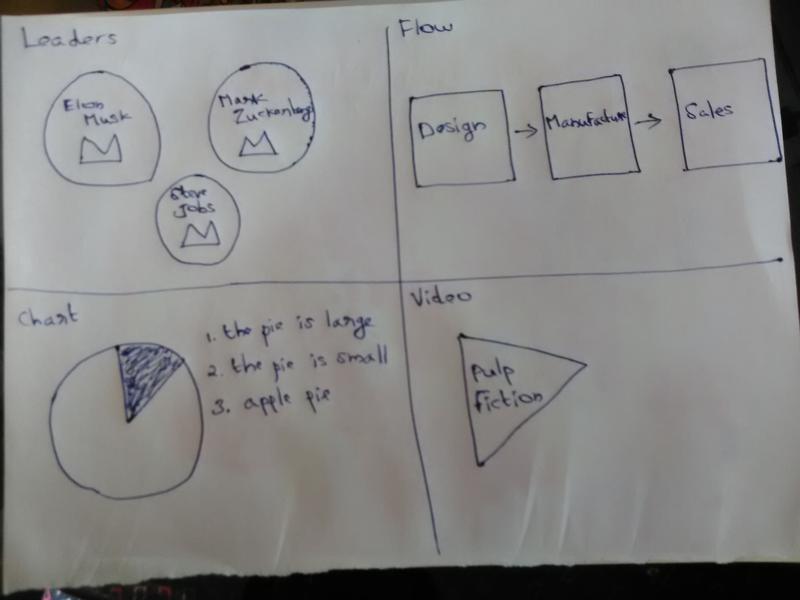 Leaders
Elon
Musk
Mark
Zuckenberg
Steve
Jobs
Flow
Design
Manufacture
Sales
Chart
1. the pie is large
2. the pie is small
3. apple pie
Video
Pulp
Fiction